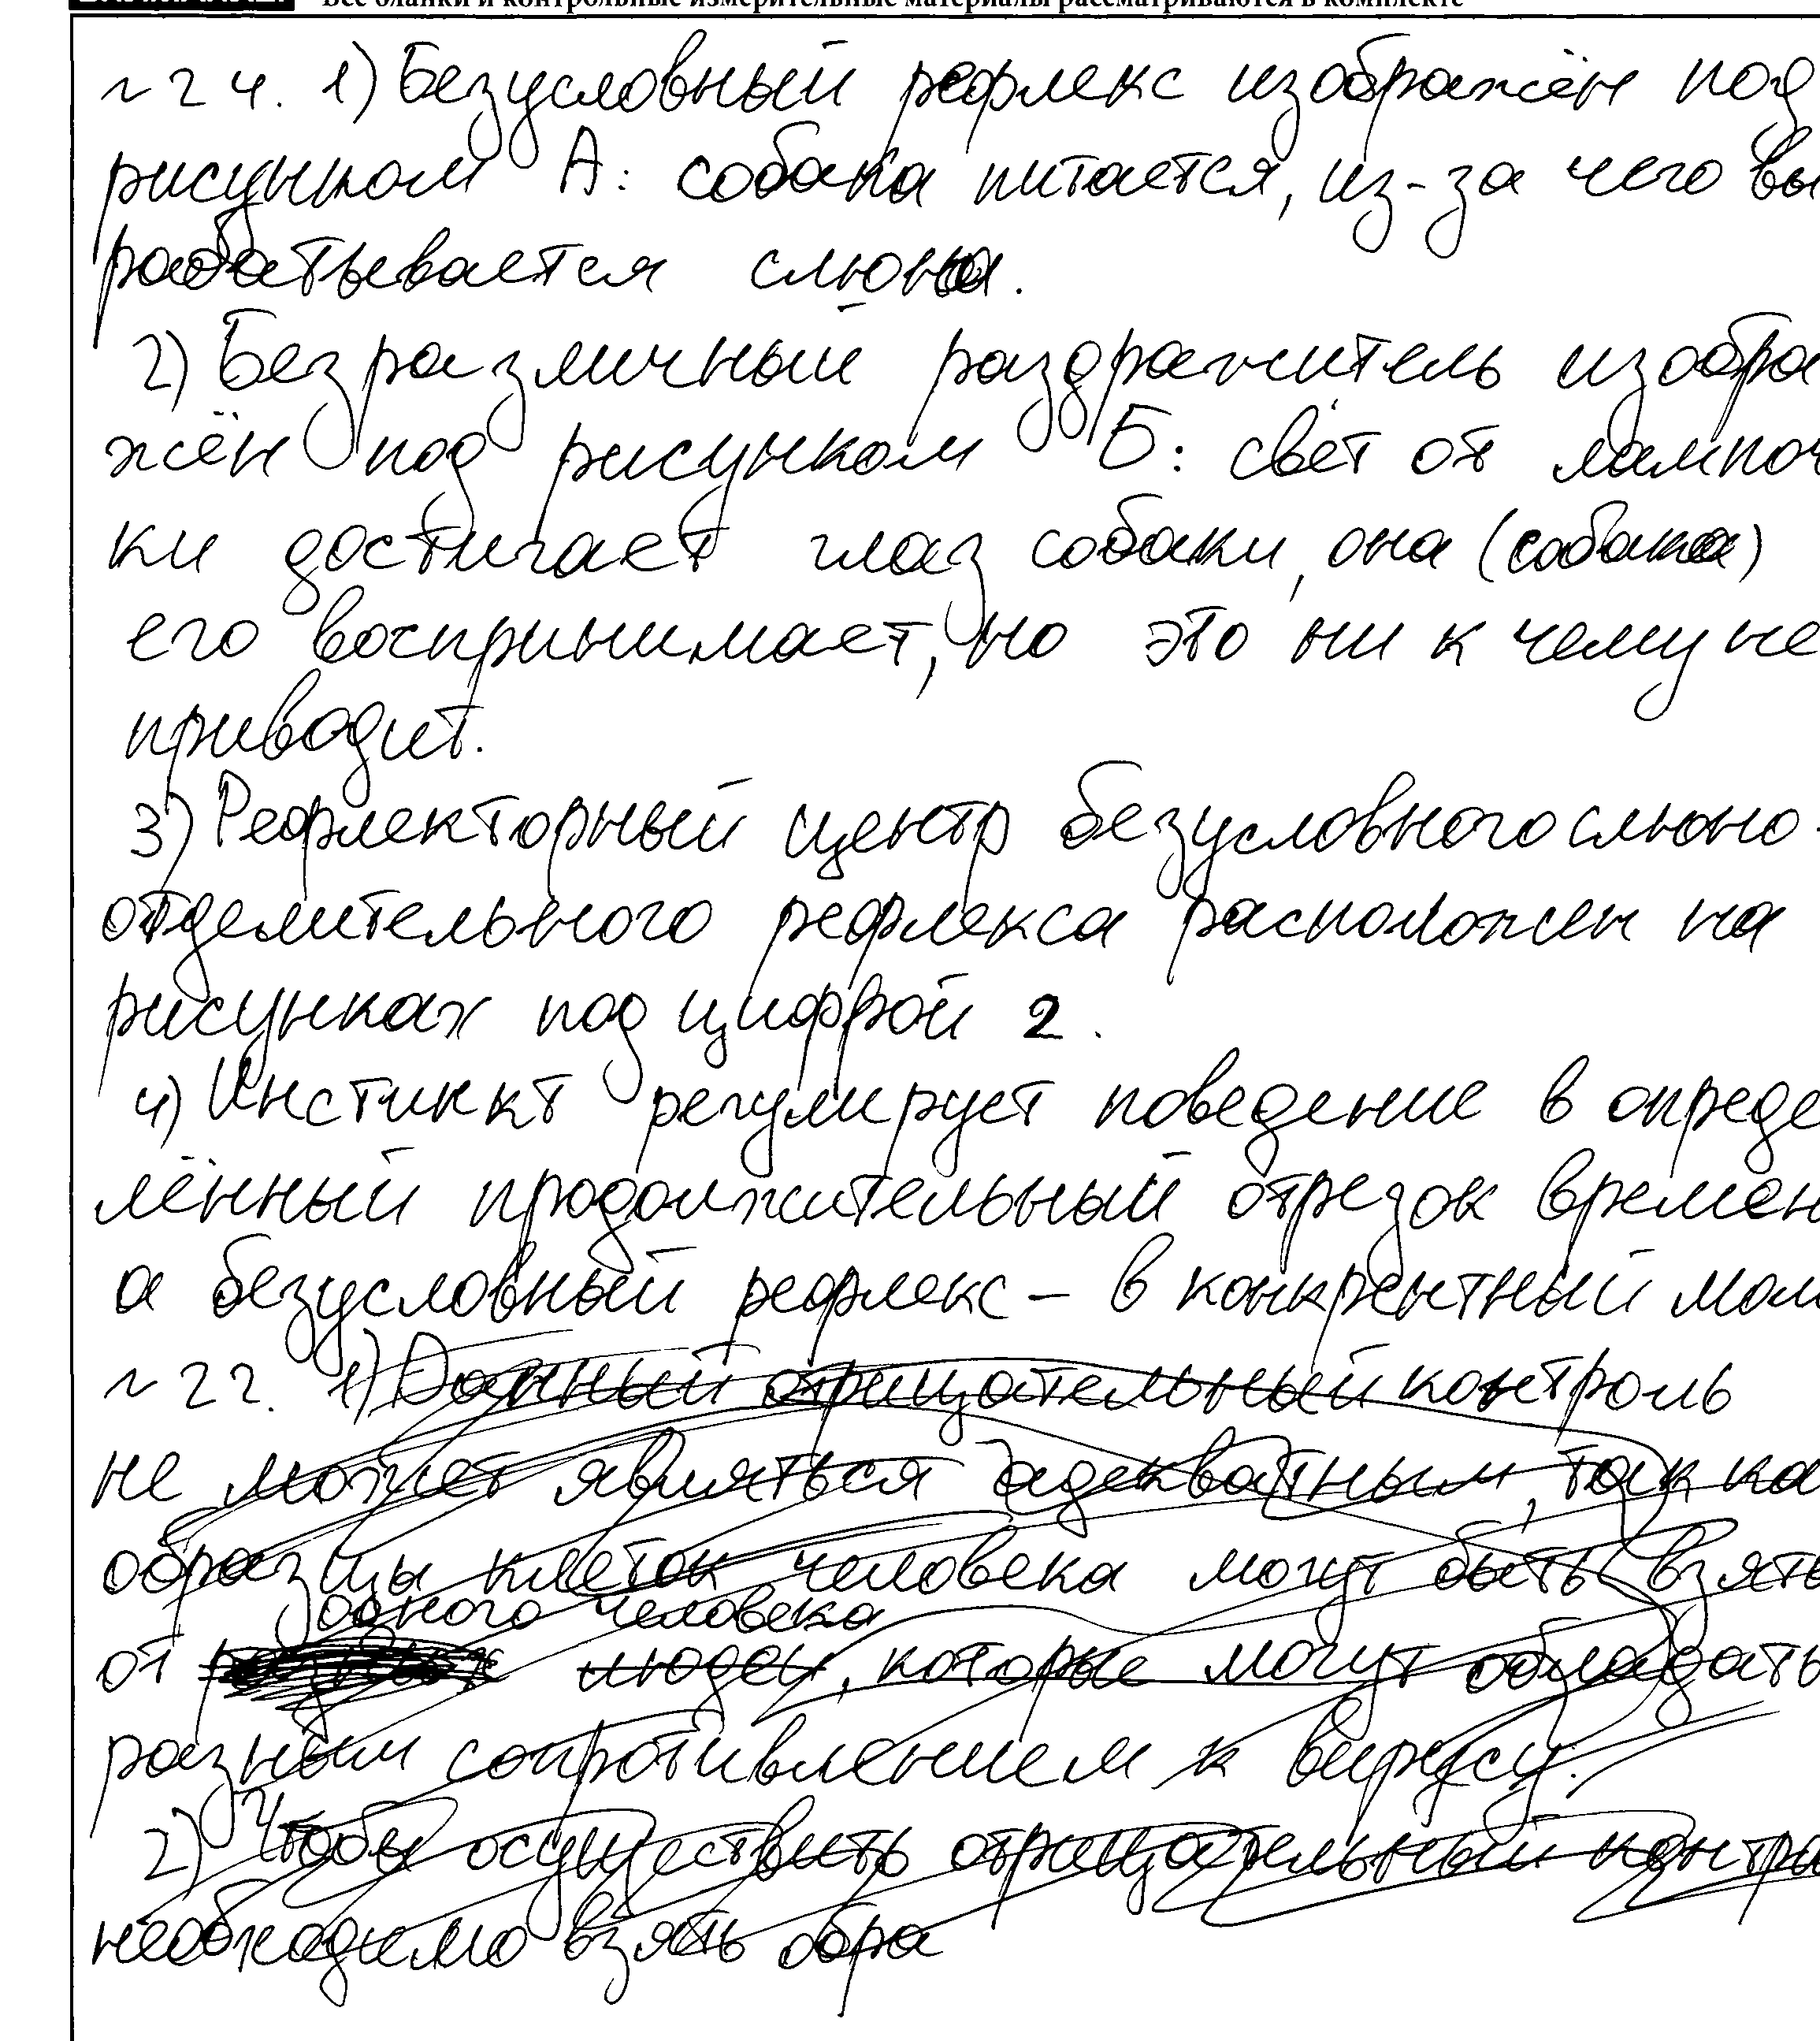 Все бланки и контрольные измерительные материалы рассматриваются в комплекте
~24. 1) Безусловный рефлекс изображён под
рисунком А: собака питается, из-за чего вы
рабатывается слюна.
2) Безразличный раздражитель изобра
жён под рисунком Б: свет от лампоч
ки достигает глаз собаки, она (собака)
его воспринимает, но это ни к чему не
приводит.
3) Рефлекторный центр безусловного слюно-
отделительного рефлекса расположен на
рисунках под цифрой 2.
4) Инстинкт регулирует поведение в опреде
лённый продолжительный отрезок времен
а безусловный рефлекс – в конкретный мом
~22. 1) Данный отрицательный контроль
не может являться адекватным, так ка
образцы клеток человека могут быть взяты
одного человека
от людей, которые могут обладать
разным сопротивлением к вирусу.
2) Чтобы осуществить отрицательный контро
необходимо взять обра